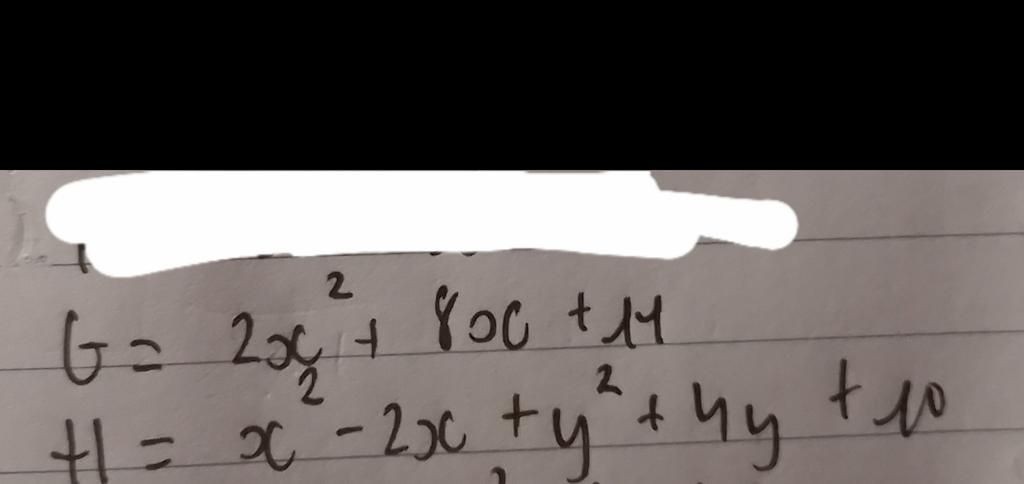 G = 2x² + 8x + 14
H = x² - 2x + y² + 4y + 10